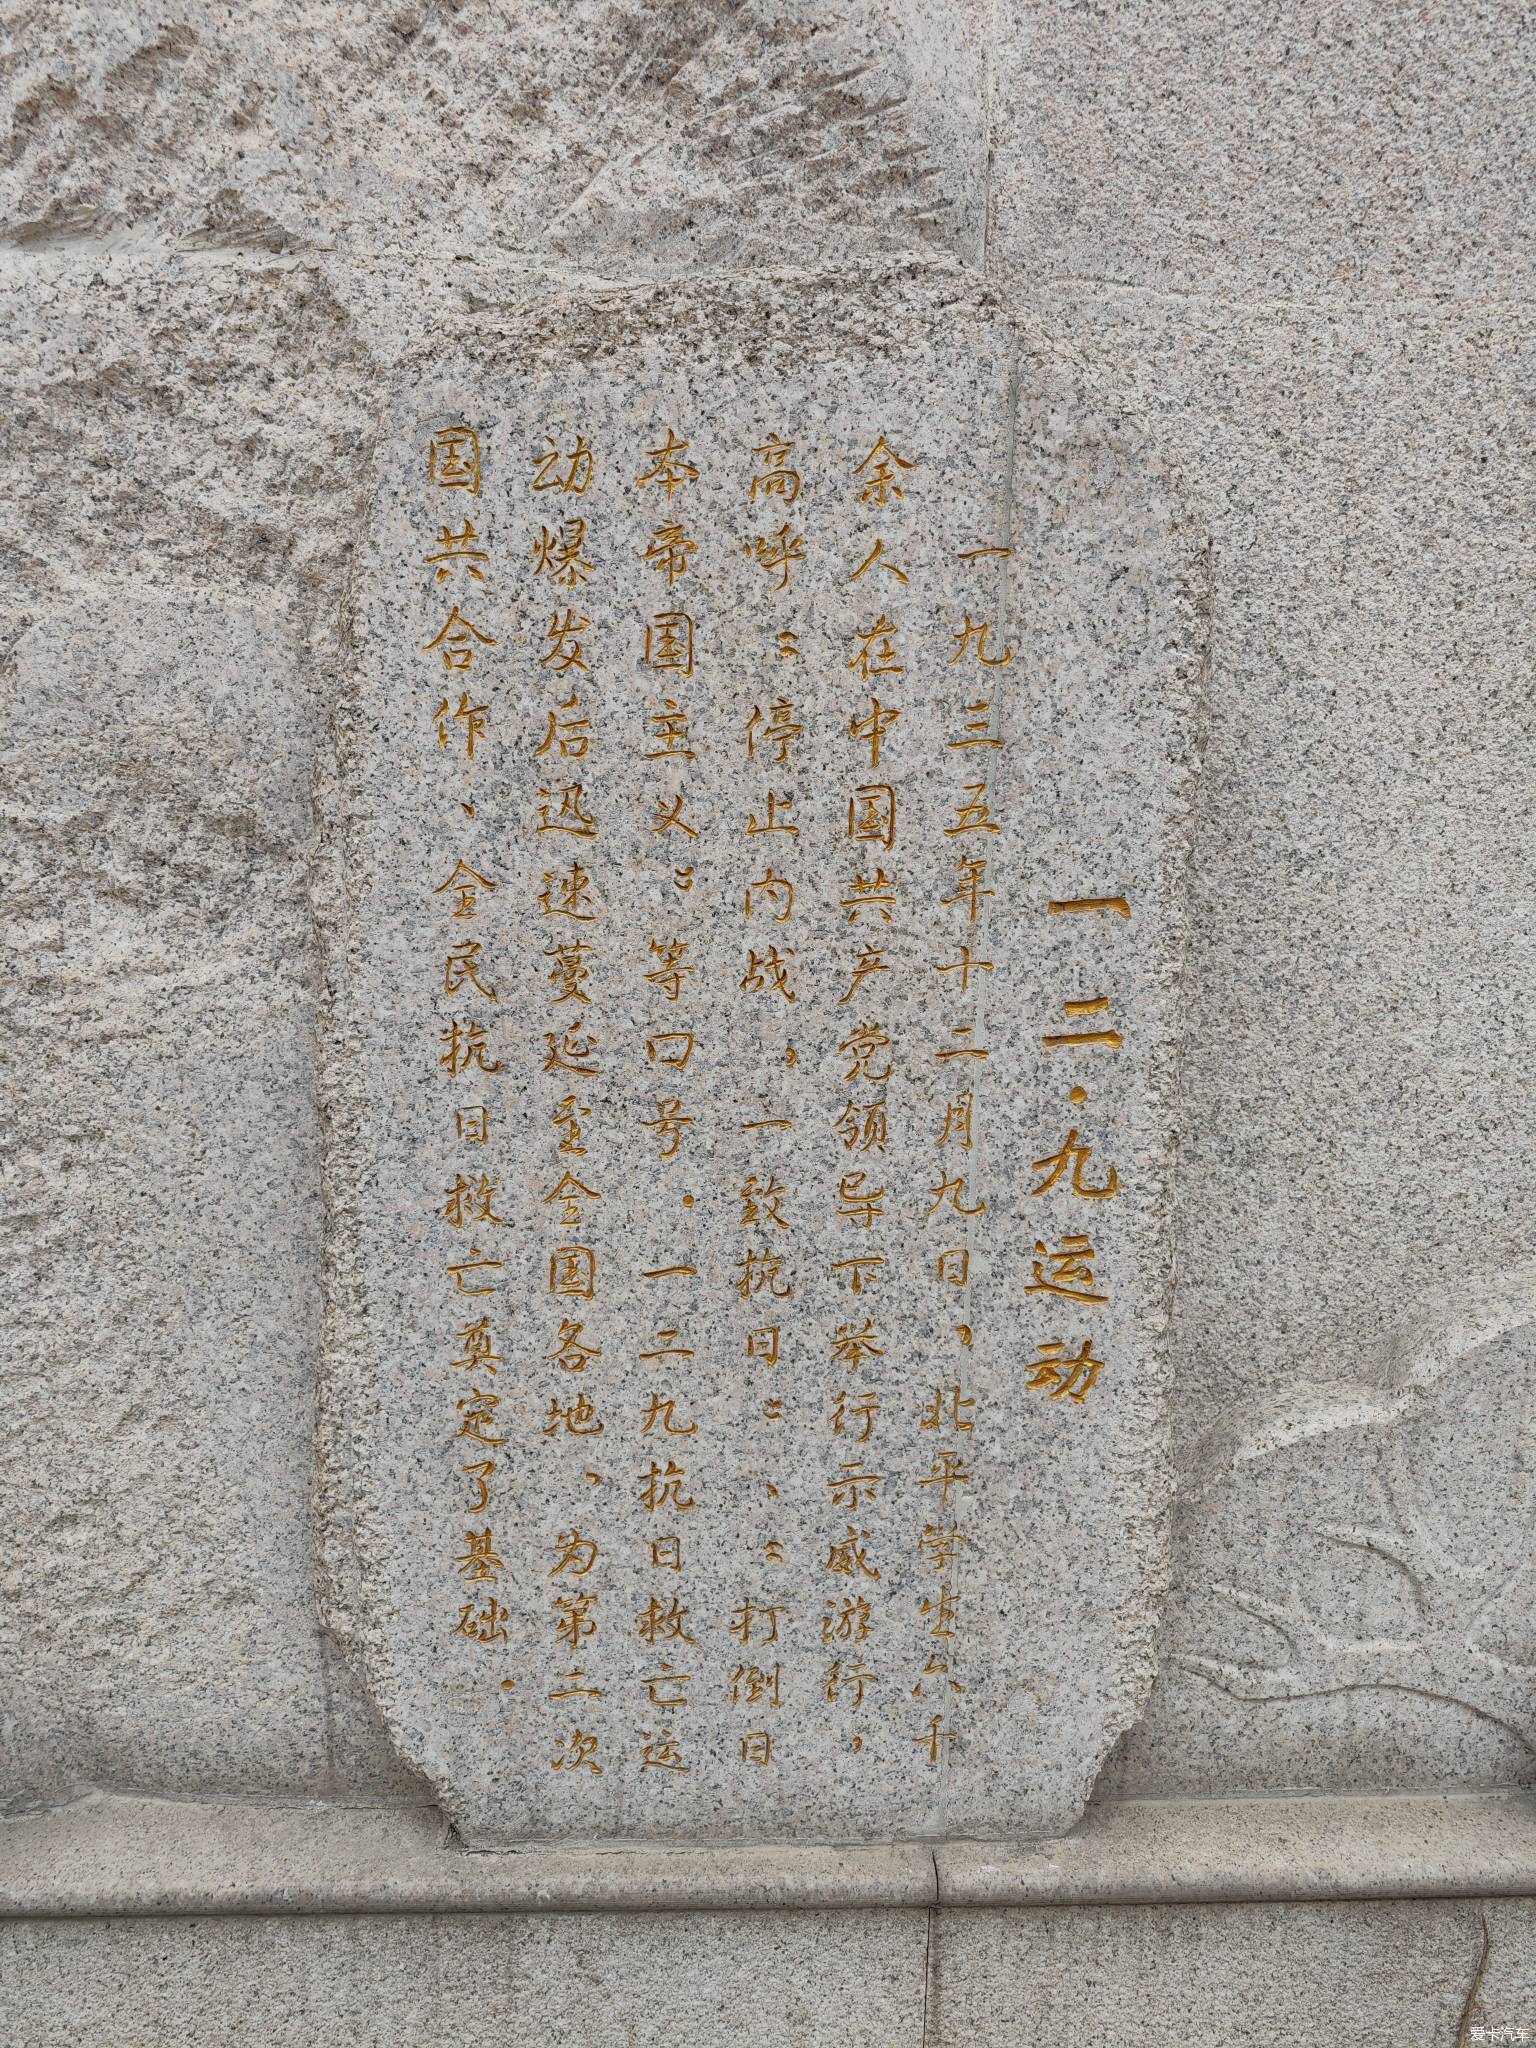 一二·九运动
一九三五年十二月九日,北平学生六千
余人在中国共产党领导下举行示威游行,
高呼:“停止内战,一致抗日”、“打倒日
本帝国主义”等口号.一二九抗日救亡运
动爆发后迅速蔓延至全国各地、为第二次
国共合作、全民抗日救亡奠定了基础.
爱卡汽车